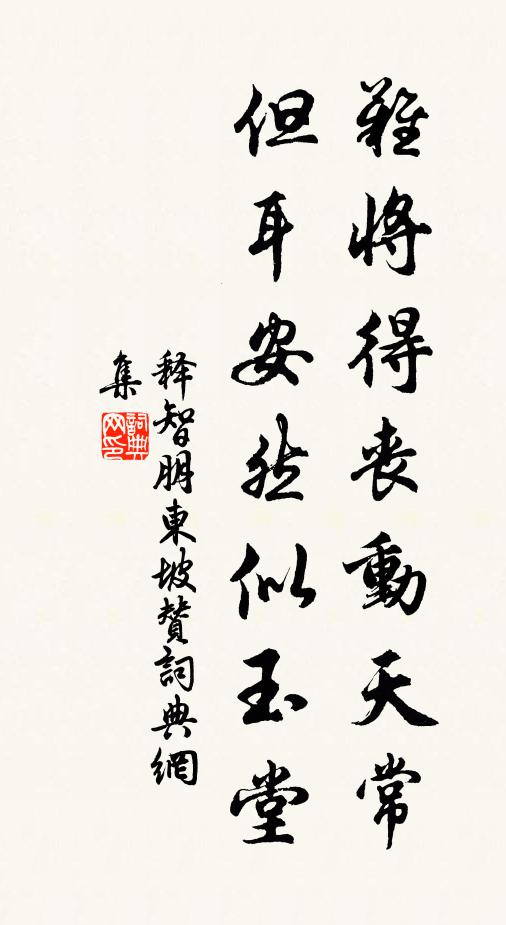 難將得喪動天常
但耳安然似玉堂
释智朋東坡贊詞典網
集
詞典网印